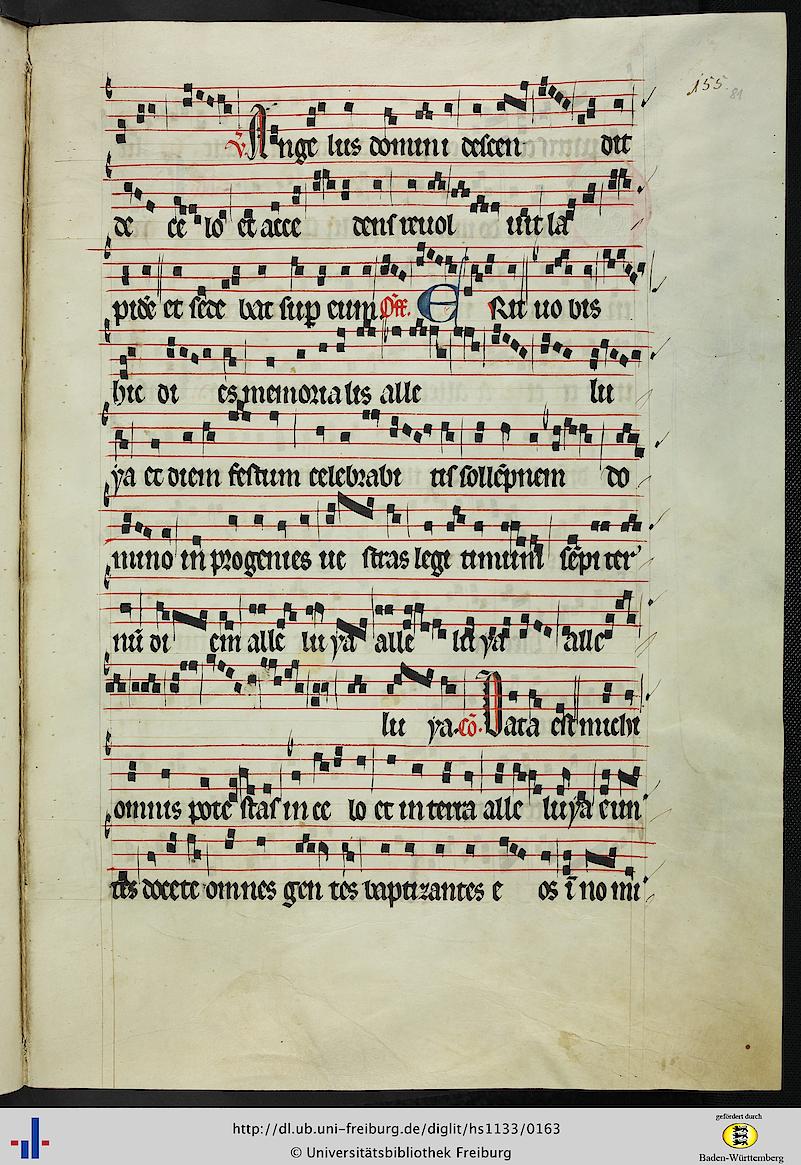 155.
81
V. Ange lus domini descen dit
de ce lo et acce dens reuol uit la
pidē et sede bat sup eum Off. Erit uo bis
hic di es memoria lis alle lu
ya et diem festum celebrabi tis sollēpnem do
mino in progenies ue stras legi timum sēpi ter
nū di em alle lu ya alle lu ya alle
lu ya. Cō. Data est michi
omnis pote stas in ce lo et in terra alle luya eun
tes docete omnes gen tes baptizantes e os ī no mi
http://dl.ub.uni-freiburg.de/diglit/hs1133/0163
© Universitätsbibliothek Freiburg
gefördert durch
Baden-Württemberg